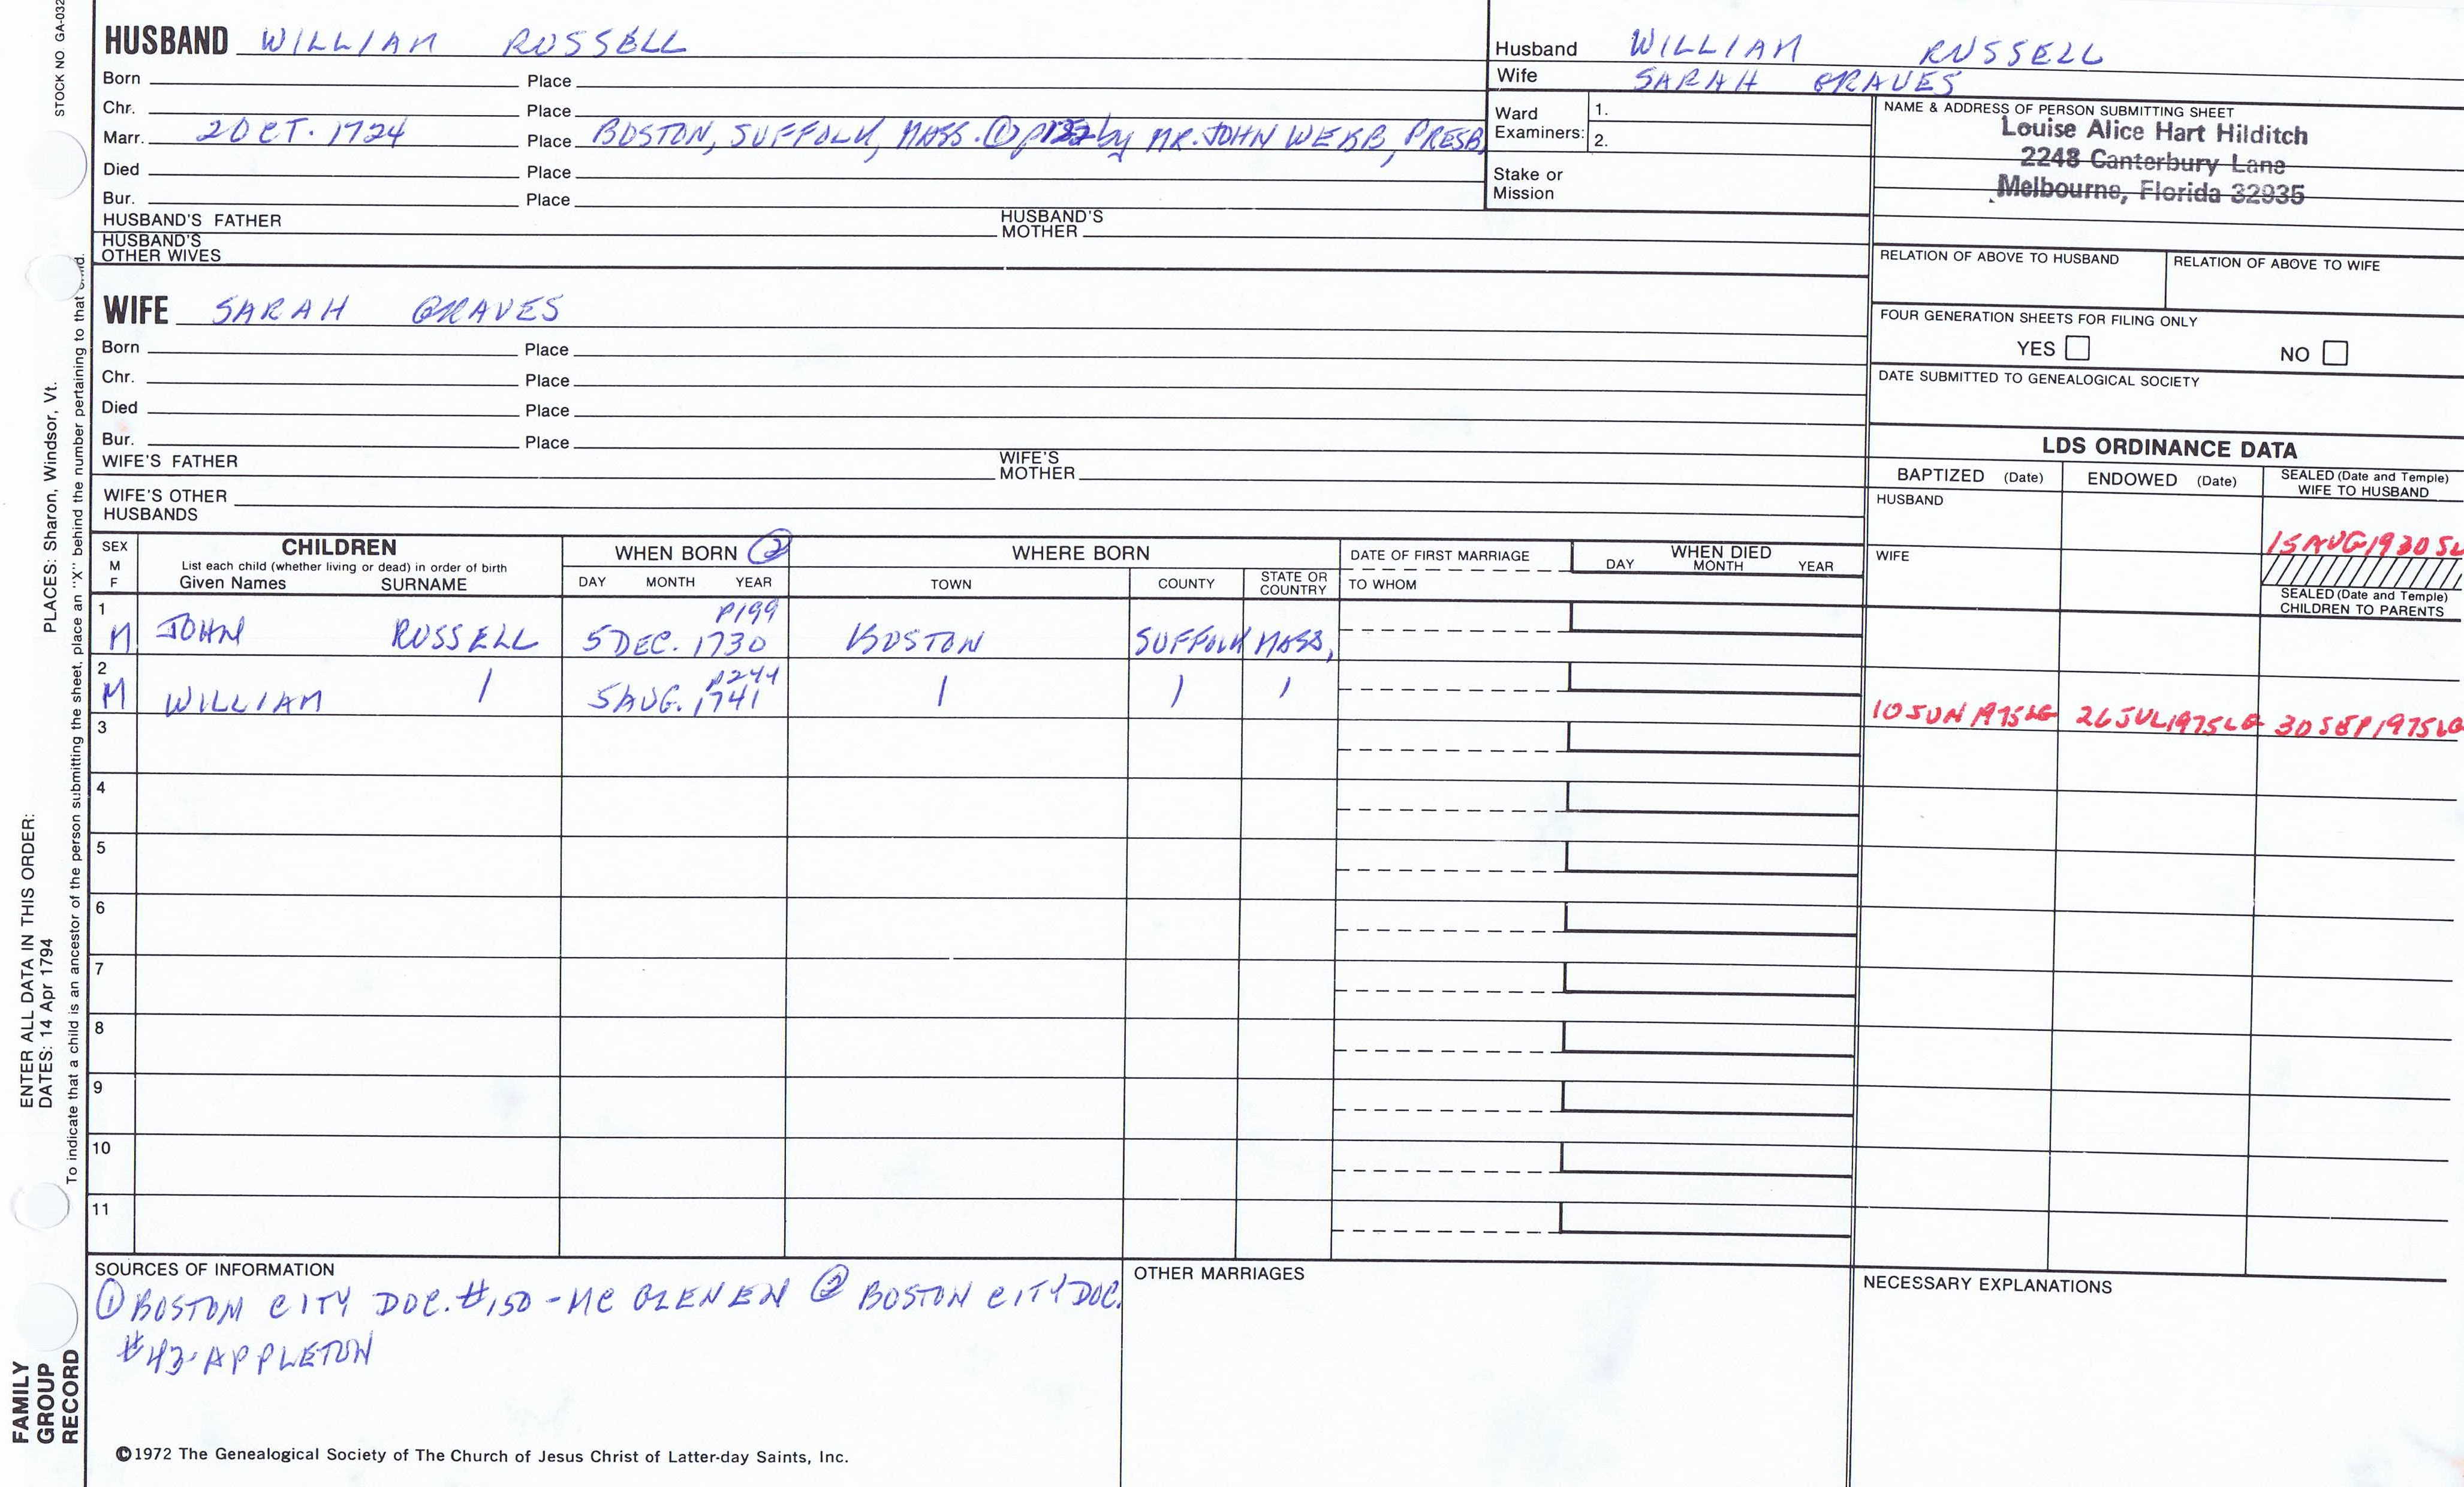 STOCK NO GA-032
HUSBAND WILLIAM RUSSELL
Born Place
Chr. Place
Marr. 2 OCT. 1724 Place BOSTON, SUFFOLK, MASS. ① by MR. JOHN WEBB, PRESB.
Died Place
Bur. Place
HUSBAND'S FATHER HUSBAND'S MOTHER
HUSBAND'S
OTHER WIVES
Husband WILLIAM RUSSELL
Wife SARAH GRAVES
Ward
Examiners: 1.
2.
Stake or
Mission
NAME & ADDRESS OF PERSON SUBMITTING SHEET
Louise Alice Hart Hilditch
2248 Canterbury Lane
Melbourne, Florida 32935
RELATION OF ABOVE TO HUSBAND RELATION OF ABOVE TO WIFE
FOUR GENERATION SHEETS FOR FILING ONLY
YES NO
DATE SUBMITTED TO GENEALOGICAL SOCIETY
WIFE SARAH GRAVES
Born Place
Chr. Place
Died Place
Bur. Place
WIFE'S FATHER WIFE'S MOTHER
WIFE'S OTHER
HUSBANDS
LDS ORDINANCE DATA
BAPTIZED (Date) ENDOWED (Date) SEALED (Date and Temple)
WIFE TO HUSBAND
HUSBAND
15 AUG 1930 SL
WIFE
SEALED (Date and Temple)
CHILDREN TO PARENTS
SEX
M
F
CHILDREN
List each child (whether living or dead) in order of birth
Given Names SURNAME
WHEN BORN ②
DAY MONTH YEAR
WHERE BORN
TOWN COUNTY STATE OR COUNTRY
DATE OF FIRST MARRIAGE
TO WHOM
WHEN DIED
DAY MONTH YEAR
1 P199
M JOHN RUSSELL 5 DEC. 1730 BOSTON SUFFOLK MASS,
2 P244
M WILLIAM 1 5 AUG. 1741 1 1 1 10 JUN 1975 LG 26 JUL 1975 LG 30 SEP 1975 LG
3
4
5
6
7
8
9
10
11
SOURCES OF INFORMATION
① BOSTOM CITY DOC. #150 - MC GLENEN ② BOSTON CITY DOC.
#43 - APPLETON
OTHER MARRIAGES
NECESSARY EXPLANATIONS
©1972 The Genealogical Society of The Church of Jesus Christ of Latter-day Saints, Inc.
FAMILY
GROUP
RECORD
ENTER ALL DATA IN THIS ORDER:
DATES: 14 Apr 1794
PLACES: Sharon, Windsor, Vt.
To indicate that a child is an ancestor of the person submitting the sheet, place an "X" behind the number pertaining to that child.